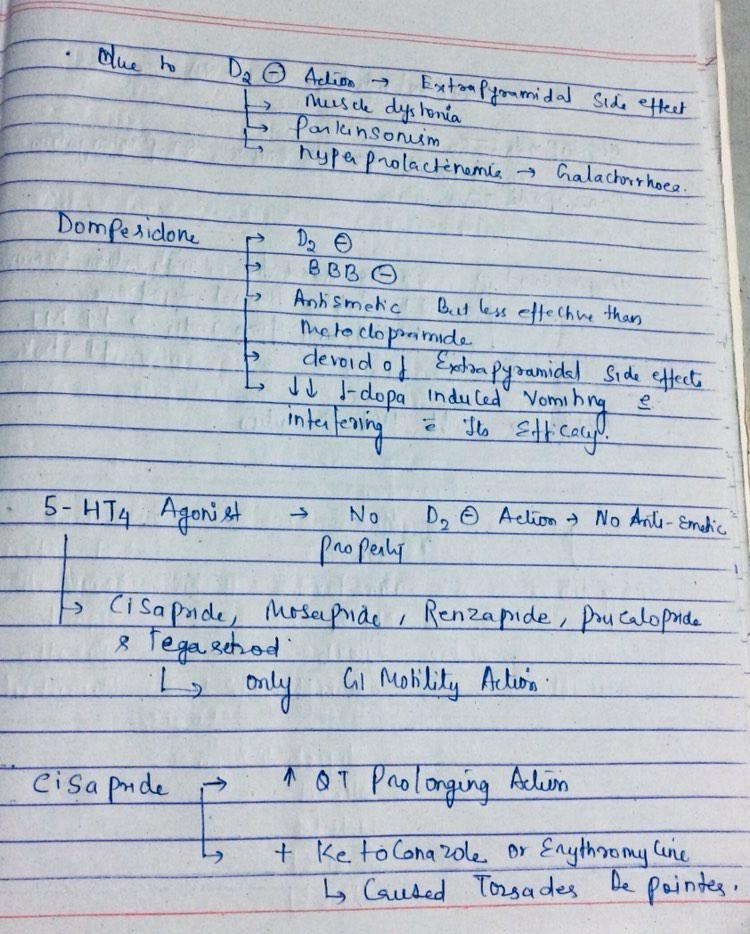 · Due to D₂ ⊖ Action → Extrapyramidal Side effect
↳ Muscle dystonia
↳ Parkinsonism
↳ hyperprolactenemia → Galactorrhoea.
Domperidone → D₂ ⊖
→ BBB ⊖
→ Antiemetic But less effective than
Metoclopramide
→ devoid of Extrapyramidal Side effects
↳ ↓↓ l-dopa induced Vomiting c̄
interfering c̄ its Efficacy.
5-HT₄ Agonist → No D₂ ⊖ Action → No Anti-Emetic
Property
↳ Cisapride, Mosapride, Renzapride, prucalopride
& Tegaserod
↳ only GI Motility Action.
Cisapride → ↑ QT Prolonging Action
↳ + Ketoconazole or Erythromycine
↳ Caused Torsades De pointes.